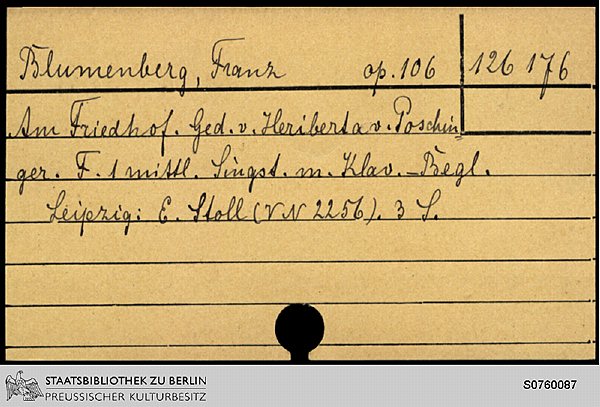 Blumenberg, Franz op. 106 126 176
Am Friedhof. Ged. v. Heriberta v. Poschin
ger. F. 1 mittl. Singst. m. Klav.-Begl.
Leipzig: E. Stoll (VN 2256). 3 S.
STAATSBIBLIOTHEK ZU BERLIN
PREUSSISCHER KULTURBESITZ
S0760087